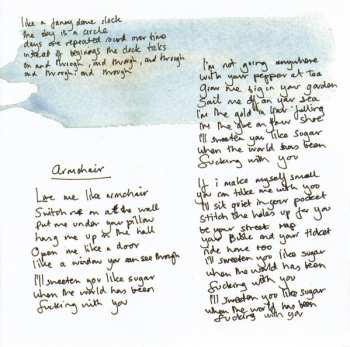 like a funny dome clock
the day is a circle
days are repeated round over time
instead of beginings the clock talks
on and through, and through, and through
and through, and through
Armchair
Love me like armchair
Switch me on at the wall
put me under your pillow
hang me up in the hall
Open me like a door
like a window you can see through
I'll sweeten you like sugar
when the world has been
fucking with you
I'm not going anywhere
with your peppers at tea
Grow me big in your garden
Sail me off on your sea
I'm the gold in your filling
I'm the glue on your shoe
I'll sweeten you like sugar
when the world has been
fucking with you
If i make myself small
you can take me with you
I'll sit quiet in your pocket
stitch the holes up for you
be your street map
your bike and your ticket
ride home too
I'll sweeten you like sugar
when the world has been
fucking with you
I'll sweeten you like sugar
when the world has been
fucking with you